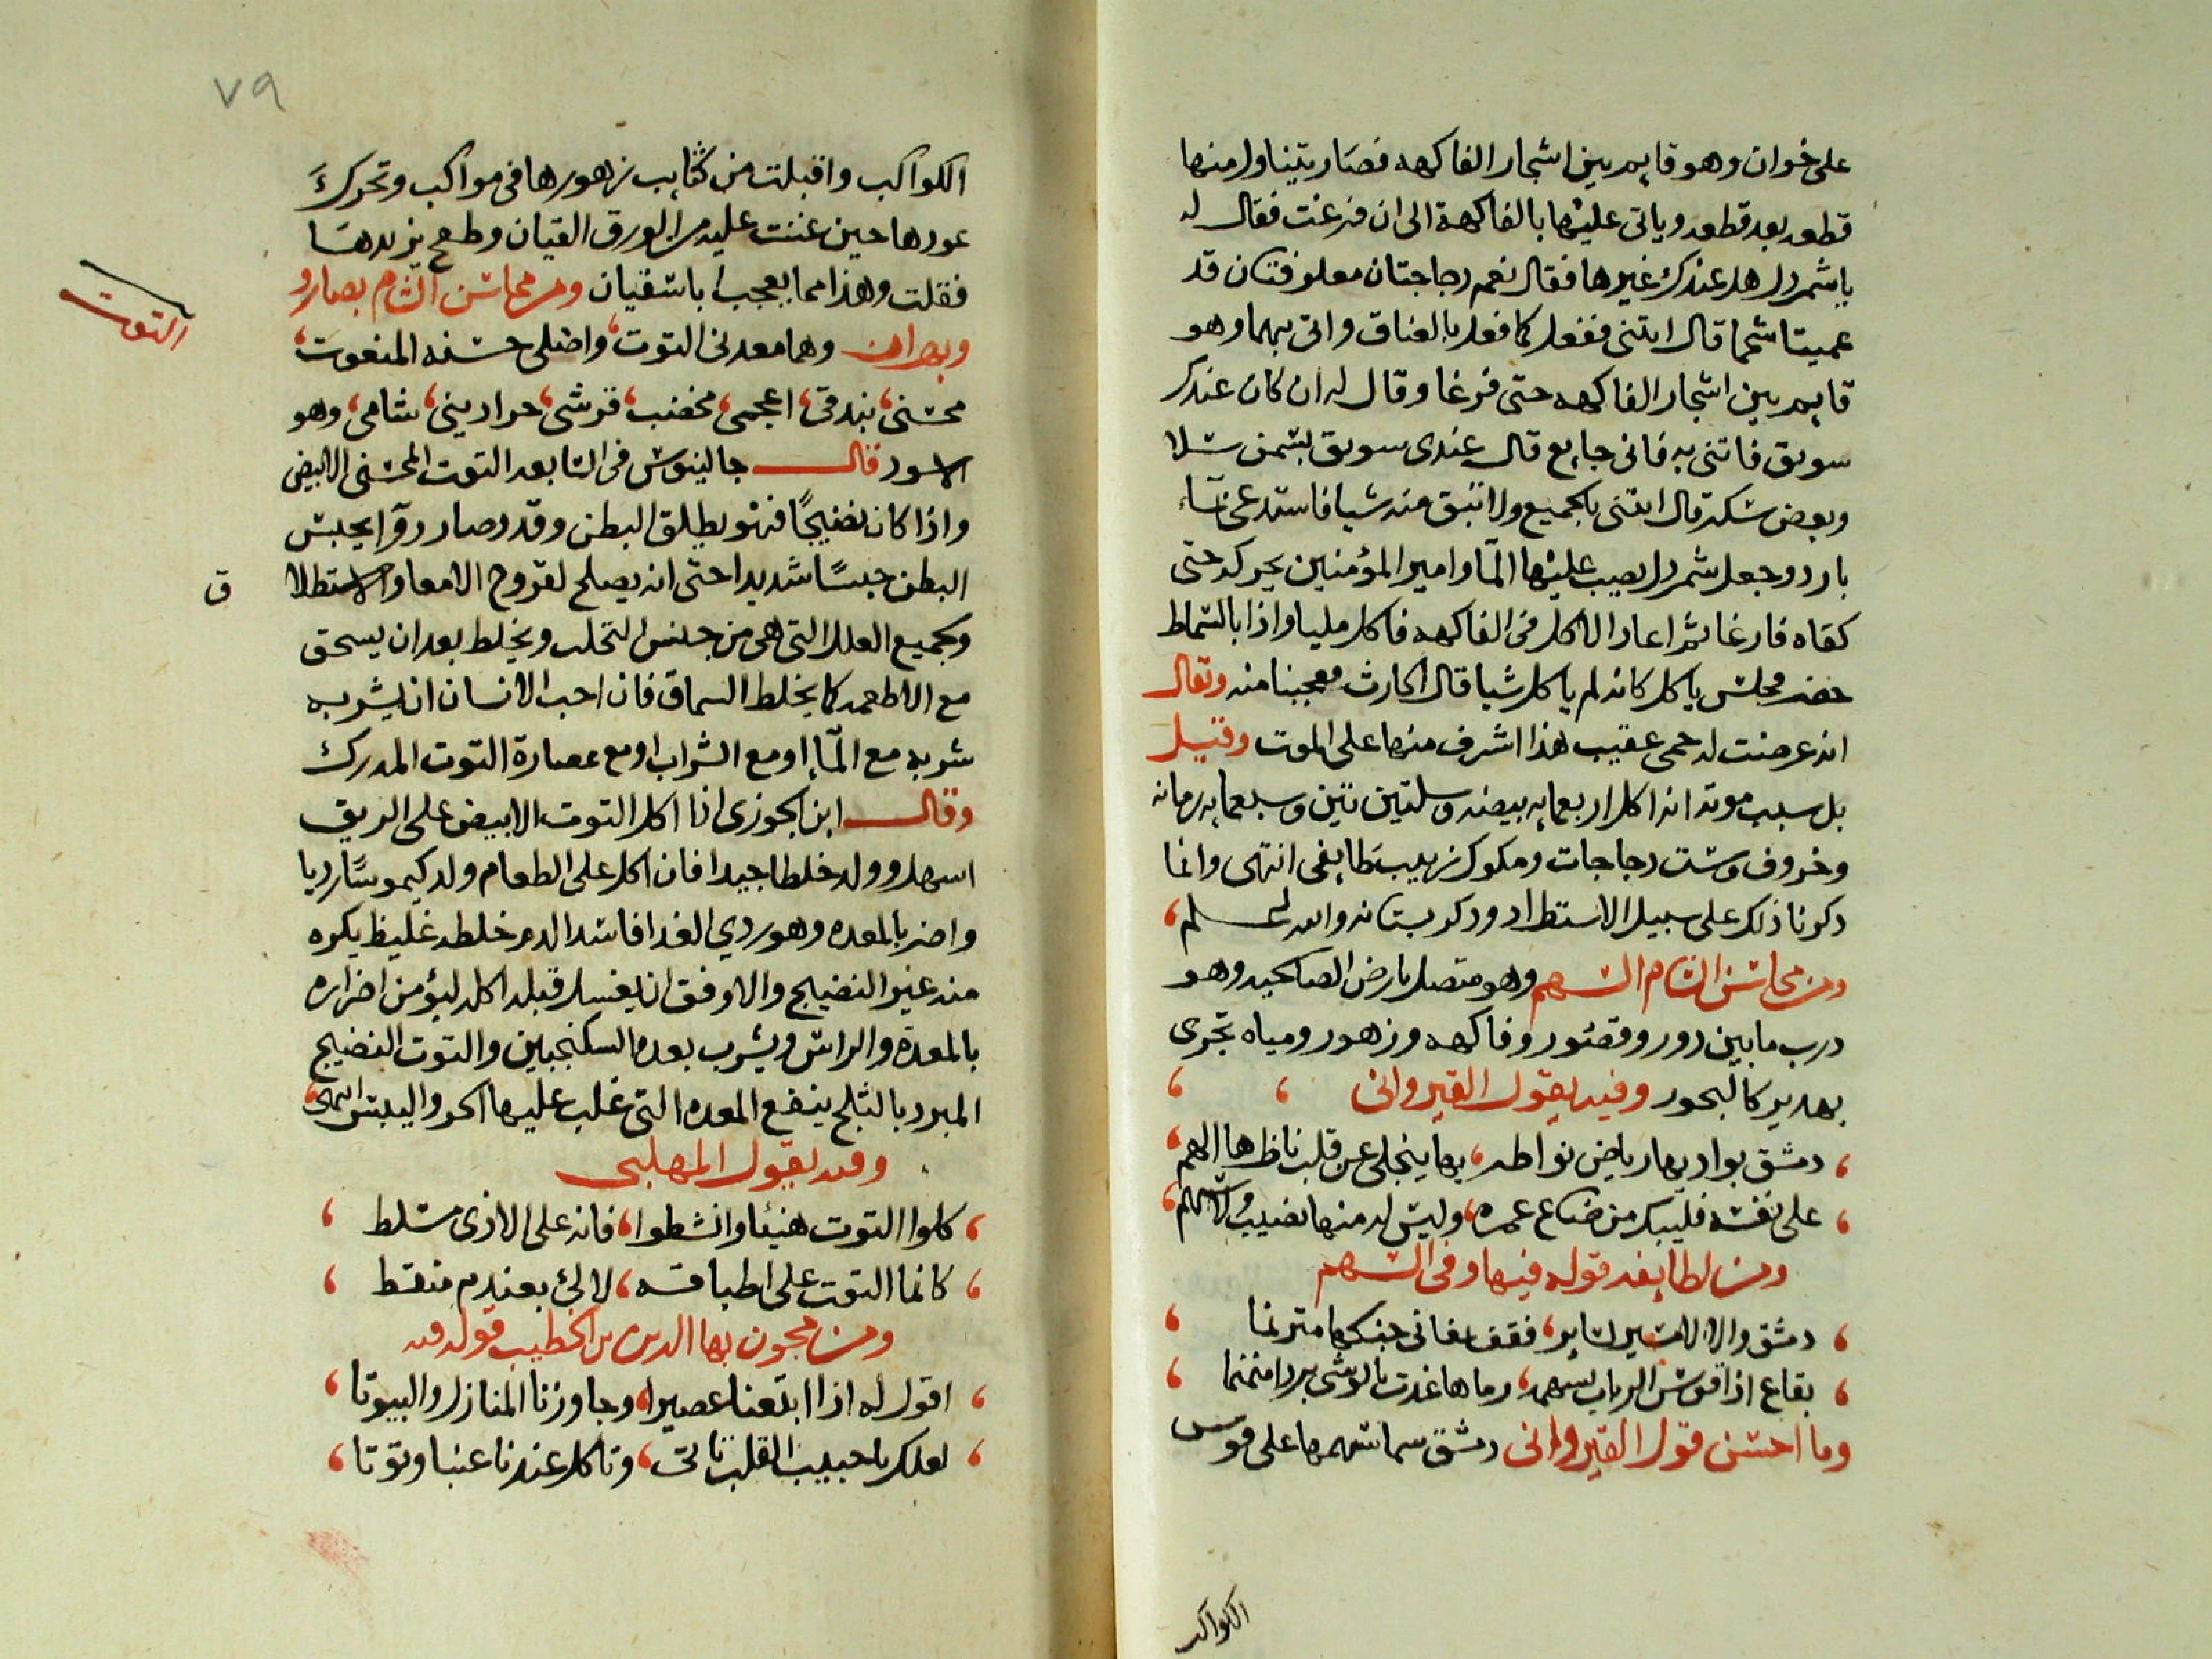 على خوان وهو قايم بين اشجار الفاكهه فصار يتناول منها
قطعه بعد قطعه وياتى عليها بالفاكهة الى ان فرغت فقال له
ياشمردل هل عندك غيرها فقال نعم دجاجتان معلوفتان قد
عميتا شحما قال ايتنى ففعل كما فعل بالعناق واتى بهما وهو
قايم بين اشجار الفاكهه حتى فرغا وقال له ان كان عندك
سويق فاتنى به فانى جايع قال عندى سويق بسمن سلا
وبعض سكر قال ايتنى بالجميع ولا تبق منه شيا فاستدعى بماء
بارد وجعل شمردل يصب عليها الما وامير المؤمنين يحركه حتى
كفاه فارغا ثم اعاد الاكل فى الفاكهه فاكل مليا واذا بالسماط
حضر فجلس ياكل كانه لم ياكل شيا قال الحارث فعجبنا منه ويقال
انه عرضت له حمى عقيب هذا اشرف منها على الموت وقيل
بل سبب موته انه اكل اربعمايه بيضه وسلتين تين وسبعمايه رمانه
وخروف وست دجاجات ومكوك زبيب طايفى انتهى وانما
ذكرنا ذلك على سبيل الاستطراد وذكر بستانه والله اعلم
ومن محاسن الشام السهم وهو متصل بارض الصالحيه وهو
درب ما بين دور وقصور وفاكهه وزهور ومياه تجرى
بهدير كالبحور وفيه يقول القيروانى
دمشق بواديها رياض نواظر بها ينجلى عن قلب ناظرها الهم
على نفسه فليبك من ضاع عمره وليس له منها نصيب ولا سهم
ومن لطايفه قوله فيها وفى السهم
دمشق والا لا
بقاع اذا قوس الرباب بسهمه رماها غدت بالوشى بردا منمنما
وما احسن قول القيروانى دمشق سما سهمها على قوس
الكواكب
٧٩
الكواكب واقبلت من كتايب زهورها فى مواكب وتحرك
عودها حين غنت عليه من الورق القيان وطمح يزيدها
فقلت وهذا مما يعجب ابا سفيان ومن محاسن الشام بصارو
وبصران وهما معدنى التوت واصلى حسنه المنعوت
التوت
محسنى بندقى اعجمى مخضب قرشى حراديني شامى وهو
الاسود قال جالينوس فى السابعه التوت المحسنى الابيض
واذا كان نضيجًا فهو يطلق البطن وقد وصار دوآ يحبس
البطن حبسًا شديدا حتى انه يصلح لقروح الامعا والاستطلا
ق
وجميع العلل التى هى من جنس التحلب ويخلط بعد ان يسحق
مع الاطعمه كما يخلط السماق فان احب الانسان ان يشربه
شربه مع المآ او مع الشراب او مع عصارة التوت المدرك
وقال ابن الجوزى اذا اكل التوت الابيض على الريق
اسهل وولد خلطا جيدا فان اكل على الطعام ولد كيموسًا رديا
واضر بالمعده وهو ردي الغدا فاسد الدم خلطه غليظ يكره
منه غير النضيج والاوفق ان يغسل قبل اكله ليؤمن اضراره
بالمعدة والراس ويشرب بعده السكنجبين والتوت النضيج
المبرد بالثلج ينفع المعده التى غلب عليها الحر واليبس انتهى
وفيه يقول المهلبى
كلوا التوت هنيئا وانشطوا فانه على الاذى مسلط
كانما التوت على اطباقه لالئ بعندم منقط
ومن مجون بها الدين بن الخطيب قوله فيه
اقول له اذا ابتعنا عصيرا وجاوزنا المنازل والبيوتا
لعلك يا حبيب القلب تاتى وتاكل عندنا عنبا وتوتا